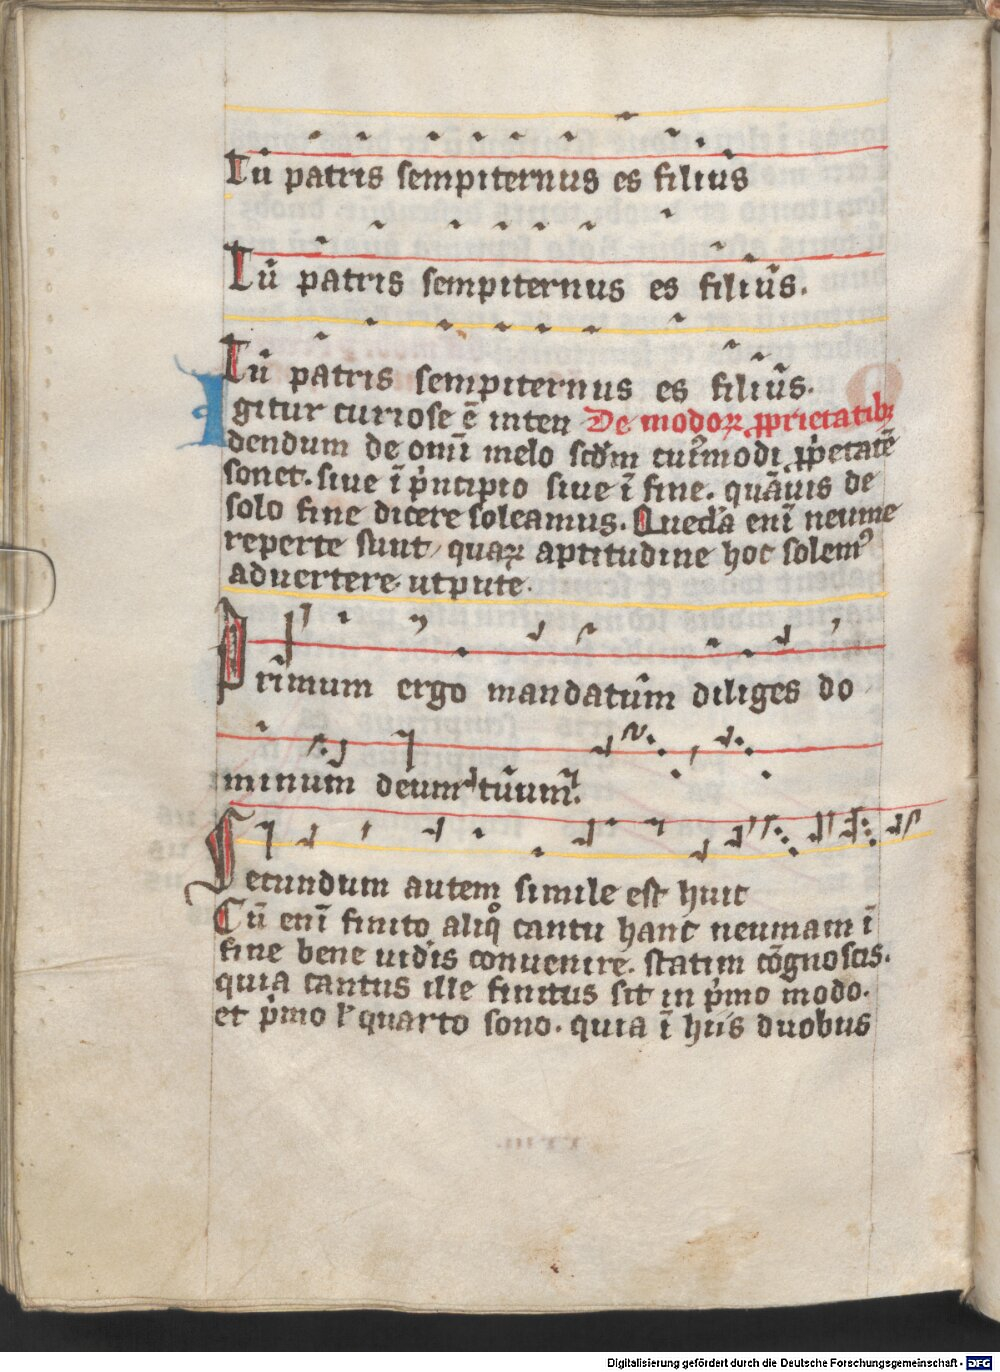 Tu patris sempiternus es filius
Tū patris sempiternus es filiꝰs.
Tū patris sempiternus es filiꝰs.
Igitur curiose ē inten De modoꝝ ꝓprietatibꝫ
dendum de omī melo scd̄m cuiꝰmodi ꝓpetatē
sonet. siue ī pͥncipio siue ī fine. quāuis de
solo fine dicere soleamus. Quedā enī neume
reperte sunt, quaꝝ aptitudine hoc solemꝰ
aduertere. utpute.
Primum ergo mandatūm diliges do
minūm deum tūum.
Secundum autem simile est huic
Cū enī finito aliqͦ cantu hanc neumam ī
fine bene uidis conuenire. statim cōgnoscis.
quia cantus ille finitus sit in pͥmo modo.
et pͥmo lꝰ quarto sono. quia ī hiis duobus
Digitalisierung gefördert durch die Deutsche Forschungsgemeinschaft - DFG